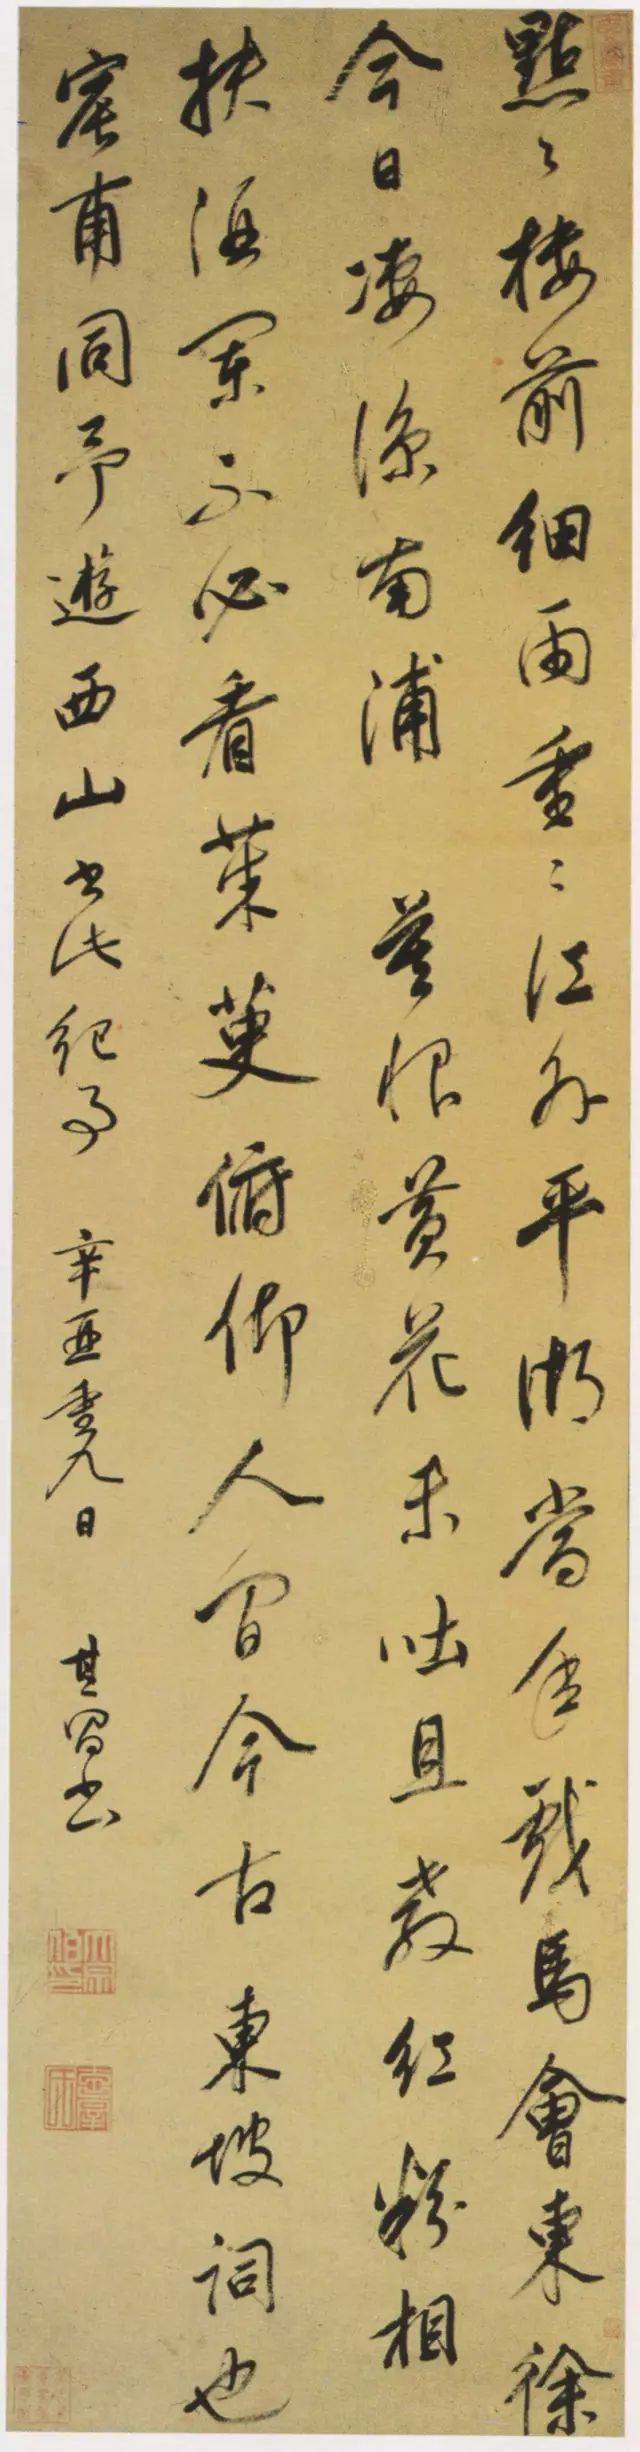 點〻樓前細雨重〻江外平湖當年戲馬會東徐
今日凄涼南浦 莫恨黃花未吐且教紅粉相
扶酒闌不必看茱萸俯仰人間今古東坡詞也
甫同予遊西山書此紀事 辛亥重九日 其昌書